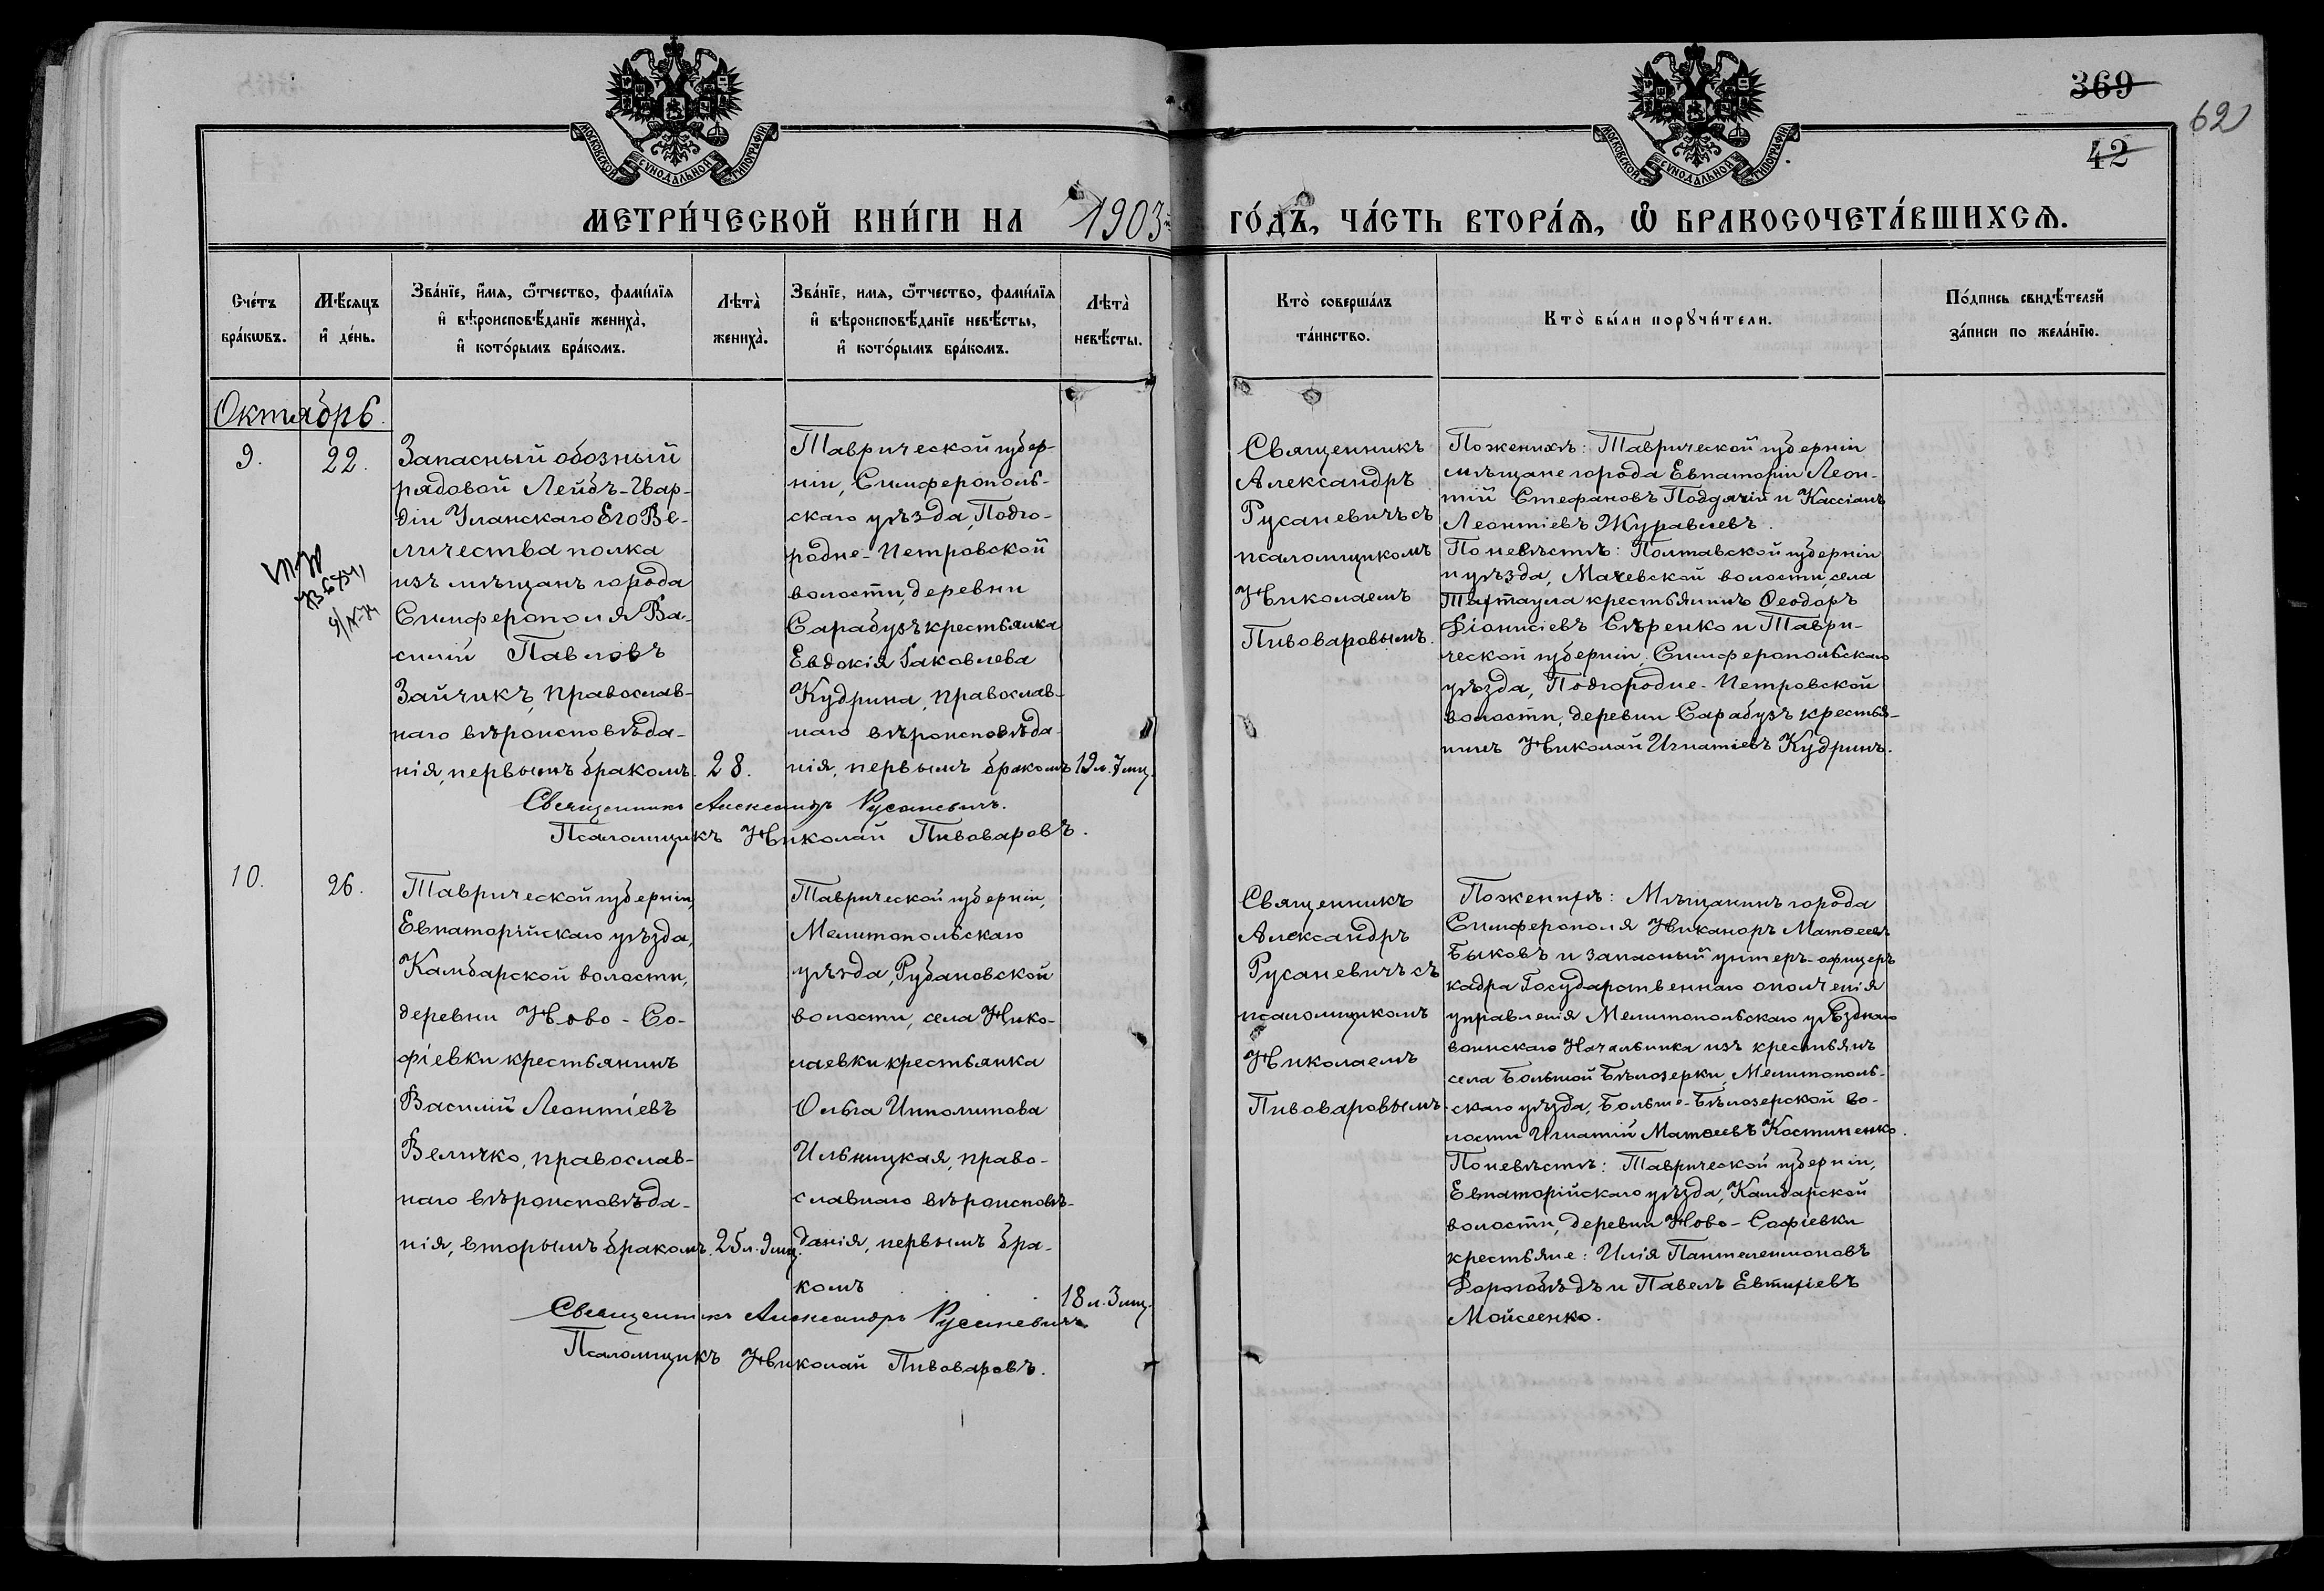 МОСКОВСКОЙ СѴНОДАЛЬНОЙ ТИПОГРАФІИ
МОСКОВСКОЙ СѴНОДАЛЬНОЙ ТИПОГРАФІИ
369
62
42
МЕТРИ́ЧЕСКОЙ КНИ́ГИ НА 1903й ГО́ДЪ, ЧА́СТЬ ВТОРА́Ѧ, Ѡ БРАКОСОЧЕТА́ВШИХСѦ.
Сче́тъ
бра́кѡвъ.
Мѣ́сяцъ
и҆ де́нь.
Зва́нїе, и҆́мя, ѿтчество, фами́лїя
и҆ вѣроисповѣ́данїе жениха̀,
и҆ кото́рымъ бра́комъ.
Лѣта̀
жениха̀.
Зва́нїе, имя, ѿтчество, фами́лїя
и҆ вѣроисповѣ́данїе невѣ́сты,
и҆ кото́рымъ бра́комъ.
Лѣта̀
невѣ́сты.
Кто̀ соверша́лъ
та́инство.
Кто̀ бы́ли порꙋчи́тели.
По́дпись свидѣ́телей
за́писи по жела́нїю.
Октябрь.
9.
22.
Запасный обозный
рядовой Лейбъ-Гвар-
діи Уланскаго Его Ве-
личества полка
изъ мѣщанъ города
Симферополя Ва-
силій Павловъ
Зайчикъ, православ-
наго вѣроисповѣда-
нія, первымъ бракомъ.
28.
Таврической губер-
ніи, Симферополь-
скаго уѣзда, Подго-
родне-Петровской
волости, деревни
Сарабузъ крестьянка
Евдокія Іаковлева
Кудрина, православ-
наго вѣроисповѣда-
нія, первымъ бракомъ
19 л. 7 мц.
Священникъ Александръ Русаневичъ.
Псаломщикъ Николай Пивоваровъ.
Священникъ
Александръ
Русаневичъ съ
псаломщикомъ
Николаемъ
Пивоваровымъ.
По женихѣ: Таврической губерніи
мѣщане города Евпаторіи Леон-
тій Стефановъ Поддячій и Кассіанъ
Леонтіевъ Журавлевъ.
По невѣстѣ: Полтавской губерніи
и уѣзда, Мачевской волости, села
Тахтаула крестьянинъ Ѳеодоръ
Діонисіевъ Сѣренко и Таври-
ческой губерніи, Симферопольскаго
уѣзда, Подгородне-Петровской
волости, деревни Сарабузъ крестья-
нинъ Николай Игнатіевъ Кудринъ.
10.
26.
Таврической губерніи,
Евпаторійскаго уѣзда,
Камбарской волости,
деревни Ново-Со-
фіевки крестьянинъ
Василій Леонтіевъ
Величко, православ-
наго вѣроисповѣда-
нія, вторымъ бракомъ.
25 л. 9 мц.
Таврической губерніи,
Мелитопольскаго
уѣзда, Рубановской
волости, села Нико-
лаевки крестьянка
Ольга Ипполитова
Ильницкая, право-
славнаго вѣроисповѣ-
данія, первымъ бра-
комъ
18 л. 3 мц.
Священникъ Александръ Русаневичъ
Псаломщикъ Николай Пивоваровъ.
Священникъ
Александръ
Русаневичъ съ
псаломщикомъ
Николаемъ
Пивоваровымъ.
По женихѣ: Мѣщанинъ города
Симферополя Никаноръ Матѳеевъ
Быковъ и запасный унтеръ-офицеръ
кадра Государственнаго ополченія
управленія Мелитопольскаго уѣзднаго
воинскаго Начальника изъ крестьянъ
села Большой Бѣлозерки, Мелитополь-
скаго уѣзда, Больше-Бѣлозерской во-
лости Игнатій Матѳеевъ Костиненко.
По невѣстѣ: Таврической губерніи,
Евпаторійскаго уѣзда, Камбарской
волости, деревни Ново-Софіевки
крестьяне: Илія Пантелеимоновъ
Доробѣдъ и Павелъ Евтихіевъ
Мойсеенко.